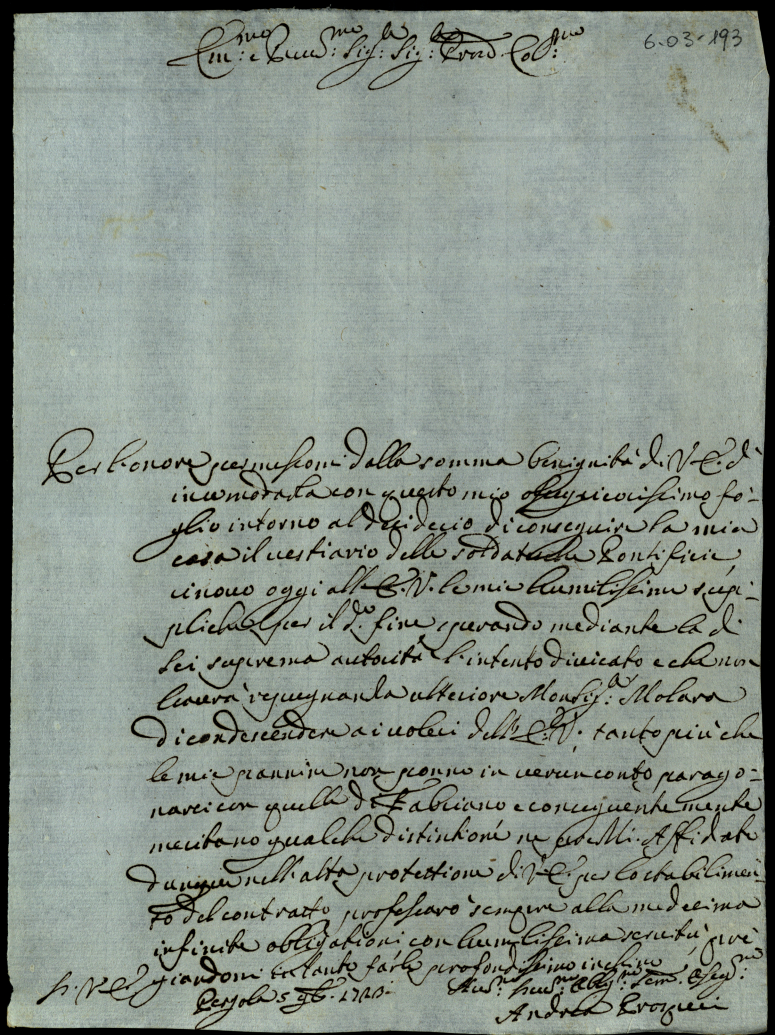 6-03-193
Em:mo e Rev:mo Sig:r Sig:r Pron Col:mo
Per l'onore permessomi dalla somma benignità di V. E. d'
incomodarla con questo mio ossequiosissimo fo=
glio intorno al desiderio di conseguire la mia
casa il vestiario delle soldatesche Pontificie,
rinovo oggi all'E. V. le mie humilissime sup=
pliche per il d.o fine, sperando mediante la di
Lei suprema autorità l'intento divisato e che non
haverà repugnanza ulteriore Monsig.r Molara
di condescendere a i voleri dell'E. V., tanto più che
le mie pannine non ponno in verun conto parago=
narsi con quelle di Fabriano e conseguentemente
meritano qualche distintione ne prezzi. Affidato
dunque nell'alta protettione di V. E. per lo stabilimen=
to del contratto, professarò sempre alla medesima
infinite obligationi con humilissima servitù, pre=
giandomi intanto farle profondissimo inchino
Di V. E.
Pergola 5 9bre 1723.
Hum:mo Dev:mo Oblig:mo Ser:re Osseq:mo
Andrea Prosperi